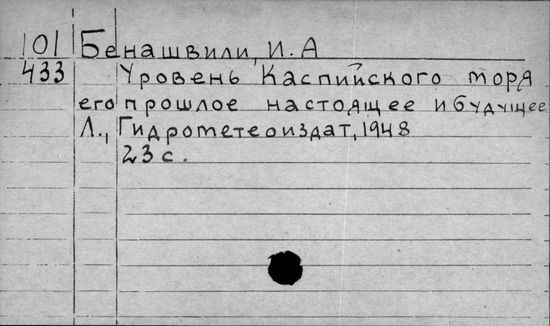 101 Бенашвили, И. А
433 Уровень Каспийского моря
его прошлое настоящее и будущее
Л., Гидрометеоиздат, 1948
23 с.